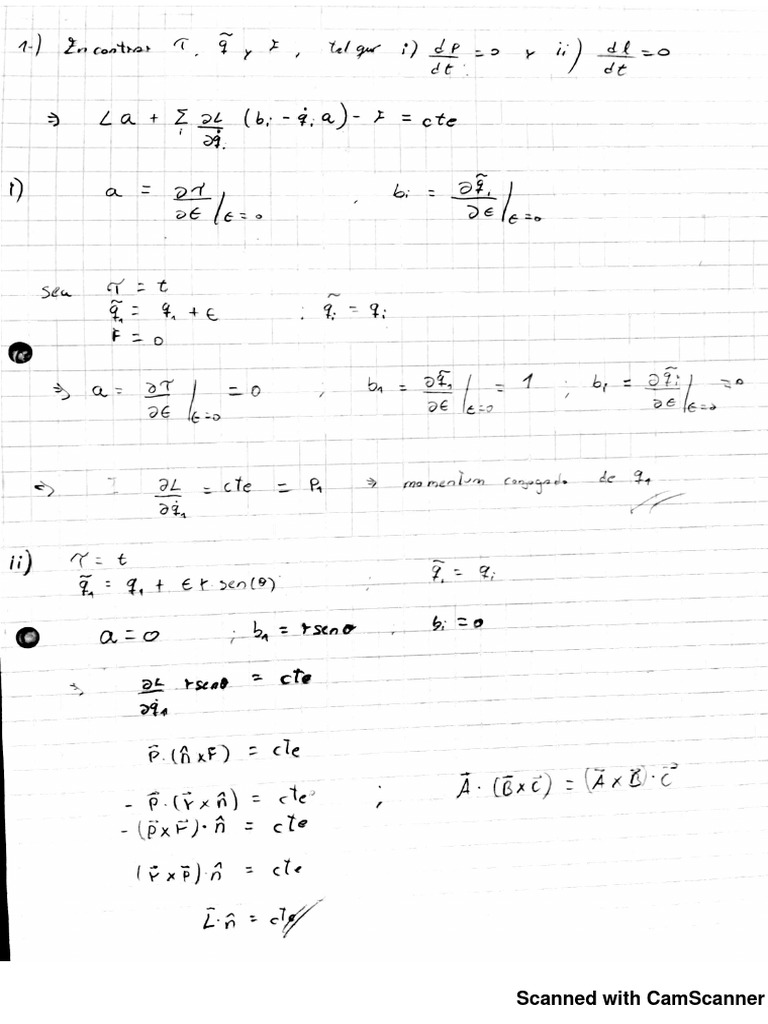 1.-) Encontrar τ, q̃ y F, tel que i) dP/dt = 0 y ii) dl/dt = 0
⇒ La + Σ_i ∂L/∂q̇_i (b_i - q̇_i a) - F = cte
i) a = ∂τ/∂ϵ |_ϵ=0 , b_i = ∂q̃_i/∂ϵ |_ϵ=0
sea τ = t
q̃_1 = q_1 + ϵ ; q̃_i = q_i
F = 0
⇒ a = ∂τ/∂ϵ |_ϵ=0 = 0 ; b_1 = ∂q̃_1/∂ϵ |_ϵ=0 = 1 ; b_i = ∂q̃_i/∂ϵ |_ϵ=0 = 0
⇒ ∂L/∂q̇_1 = cte = P_1 ⇒ momentum conjugado de q_1
ii) τ = t
q̃_1 = q_1 + ϵ r sen(θ) ; q̃_i = q_i
a = 0 ; b_1 = r senθ ; b_i = 0
⇒ ∂L/∂q̇_1 r senθ = cte
p⃗ · (n̂ × r⃗) = cte
- p⃗ · (r⃗ × n̂) = cte ; A⃗ · (B⃗ × C⃗) = (A⃗ × B⃗) · C⃗
- (p⃗ × r⃗) · n̂ = cte
(r⃗ × p⃗) · n̂ = cte
L⃗ · n̂ = cte
Scanned with CamScanner